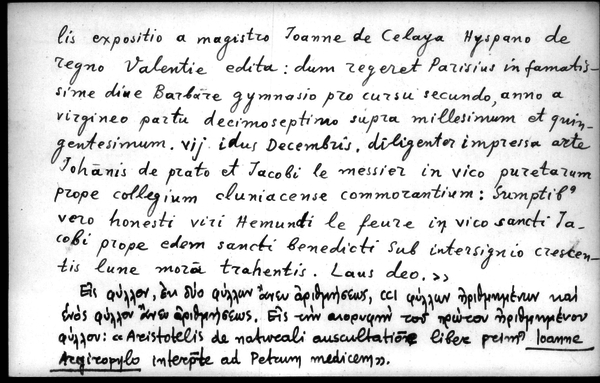 lis expositio a magistro Joanne de Celaya Hyspano de
regno Valentie edita: dum regeret Parisius in famatis-
sime diue Barbare gymnasio pro cursu secundo, anno a
virgineo partu decimoseptimo supra millesimum et quin-
gentesimum. vij. idus Decembris. diligenter impressa arte
Johānis de prato et Jacobi le messier in vico puretarum
prope collegium cluniacense commorantium: Sumptibꝰ
vero honesti viri Hemundi le feure in vico sancti Ja-
cobi prope edem sancti benedicti sub intersignio crescen-
tis lune morā trahentis. Laus deo.»
Εἷς φύλλον, ἐν δύο φύλλων ἄνευ ἀριθμήσεως, φύλλων ἠριθμημένων καὶ
ἑνὸς φύλλου ἄνευ ἀριθμήσεως. Εἰς τὴν κορυφὴν τοῦ πρώτου ἠριθμημένου
φύλλου: «Aristotelis de naturali auscultatiōe liber primꝰ Joanne
Argiropylo interp̄te ad Petrum medicem».